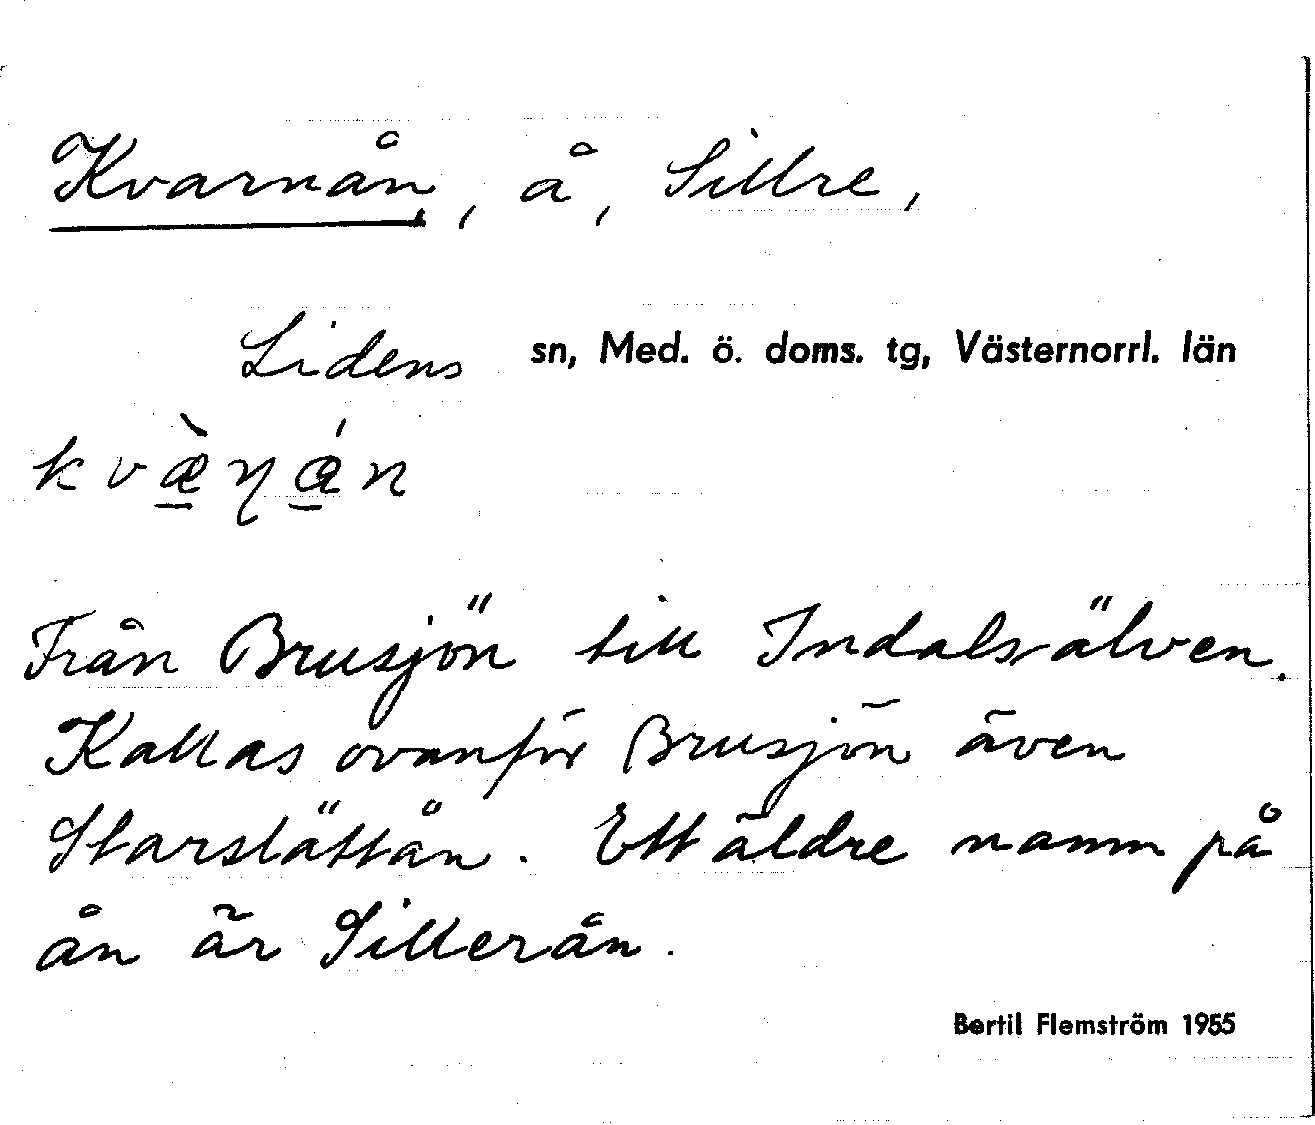 Kvarnån, å, Sillre,
Lidens sn, Med. ö. doms. tg, Västernorrl. län
Från Brusjön till Indalsälven.
Kallas ovanför Brusjön även
Starslättån. Ett äldre namn på
ån är Sillerån.
Bertil Flemström 1955